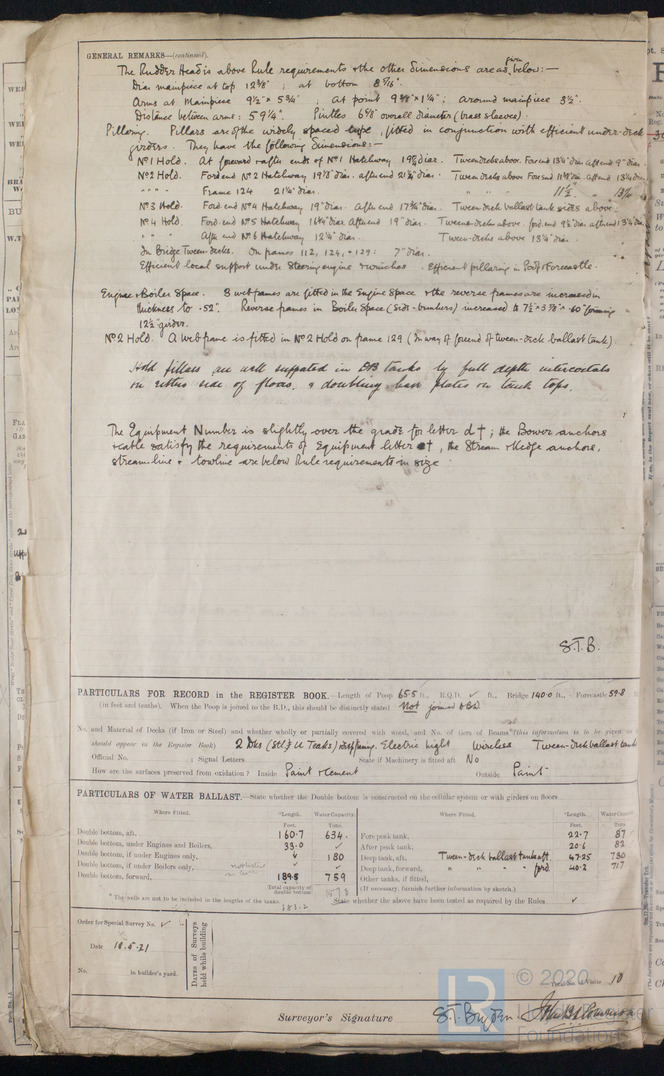 GENERAL REMARKS—(continued).
The Rudder Head is above Rule requirements & the other dimensions are as given below:—
Diar mainpiece at top 12 3/8" ; at bottom 8 7/16".
Arms at Mainpiece 9 1/2" × 5 3/4" ; At point 9 3/8" × 1 1/4" ; around mainpiece 3 1/2".
Distance between arms: 59 1/4". Pintles 6 7/8" overall diameter (brass sleeves).
Pillaring. Pillars are of the widely spaced type, fitted in conjunction with efficient under-deck
girders. They have the following Dimensions:—
No 1 Hold. At forward & after ends of No 1 Hatchway diar. Tween decks above. For end 13 1/4" diar aft end 9" diar.
No 2 Hold. For'd end No 2 Hatchway diar. after end diar. Tween decks above For end diar aft end 13 1/4 diar
" " " Frame 124 21 1/4" diar. " " " 11 1/2 "
No 3 Hold. For'd end No 4 Hatchway 19" diar. aft end 17 3/4" diar. Tween deck ballast tank sides above
No 4 Hold. For'd. end No 5 Hatchway diar. Aft end 19" diar. Tween-decks above. for'd. end 9 1/2" diar aft end 13 1/4 dia
" " After end No 6 Hatchway 12 1/4" diar. Tween-decks above 13 1/4" diar.
In Bridge Tween-decks. On frames 112, 124, & 129: 7" diar.
Efficient local support under Steering engine & winches. Efficient pillaring in Poop & Forecastle.
Engine & Boiler Space. 3 web frames are fitted in the Engine Space & the reverse frames are increased in
thickness to .52". Reverse frames in Boiler Space (Side-bunkers) increased to 7 1/2" × 3 7/8" × .60 forming
12 1/2" girder.
No 2 Hold. A web frame is fitted in No 2 Hold on frame 129 (In way of for'end of tween-deck ballast tank)
Hold pillars are well supported in DB tanks by full depth intercostals
on either side of floors, & doubling plates on tank tops.
The Equipment Number is slightly over the grade for letter d†; the Bower anchors
& cable satisfy the requirements of Equipment letter †, the Stream & Kedge anchors,
stream-line & towline are below Rule requirements in size
S.T.B.
PARTICULARS FOR RECORD in the REGISTER BOOK.—Length of Poop 65.5 ft., R.Q.D. ✓ ft., Bridge 140.0 ft., Forecastle 59.8
(in feet and tenths). When the Poop is joined to the B.D., this should be distinctly stated Not joined to B.D.
No. and Material of Decks (if Iron or Steel) and whether wholly or partially covered with wood, and No. of tiers of Beams (this information is to be given as
should appear in the Register Book) 2 Dks (Stl & Teak) Electric light wireless Tween-deck ballast tank
Official No. ; Signal Letters State if Machinery is fitted aft No
How are the surfaces preserved from oxidation? Inside Paint & Cement Outside Paint
PARTICULARS OF WATER BALLAST.—State whether the Double bottom is constructed on the cellular system or with girders on floors
Where Fitted. *Length. Water Capacity. Where Fitted. *Length. Water Capacity.
Feet. Tons. Feet. Tons.
Double bottom, aft, 160.7 634. Fore peak tank, 22.7 87
Double bottom, under Engines and Boilers, 33.0 ✓ After peak tank, 20.6 82
Double bottom, if under Engines only, ✓ 180 Deep tank, aft, Tween-deck ballast tank aft. 47.25 730
Double bottom, if under Boilers only, ✓ Deep tank, forward, " " " for'd 40.2 717
Double bottom, forward, 189.5 759 Other tanks, if fitted,
Total capacity of double bottom 1573 (If necessary, furnish further information by sketch.)
* The wells are not to be included in the lengths of the tanks. 383.2 State whether the above have been tested as required by the Rules ✓
Order for Special Survey No. ✓
Date 18.5.21
No. in builder's yard.
Dates of Surveys held while building
10
Surveyor's Signature S.T. Bryden.
© 2020
Foundation